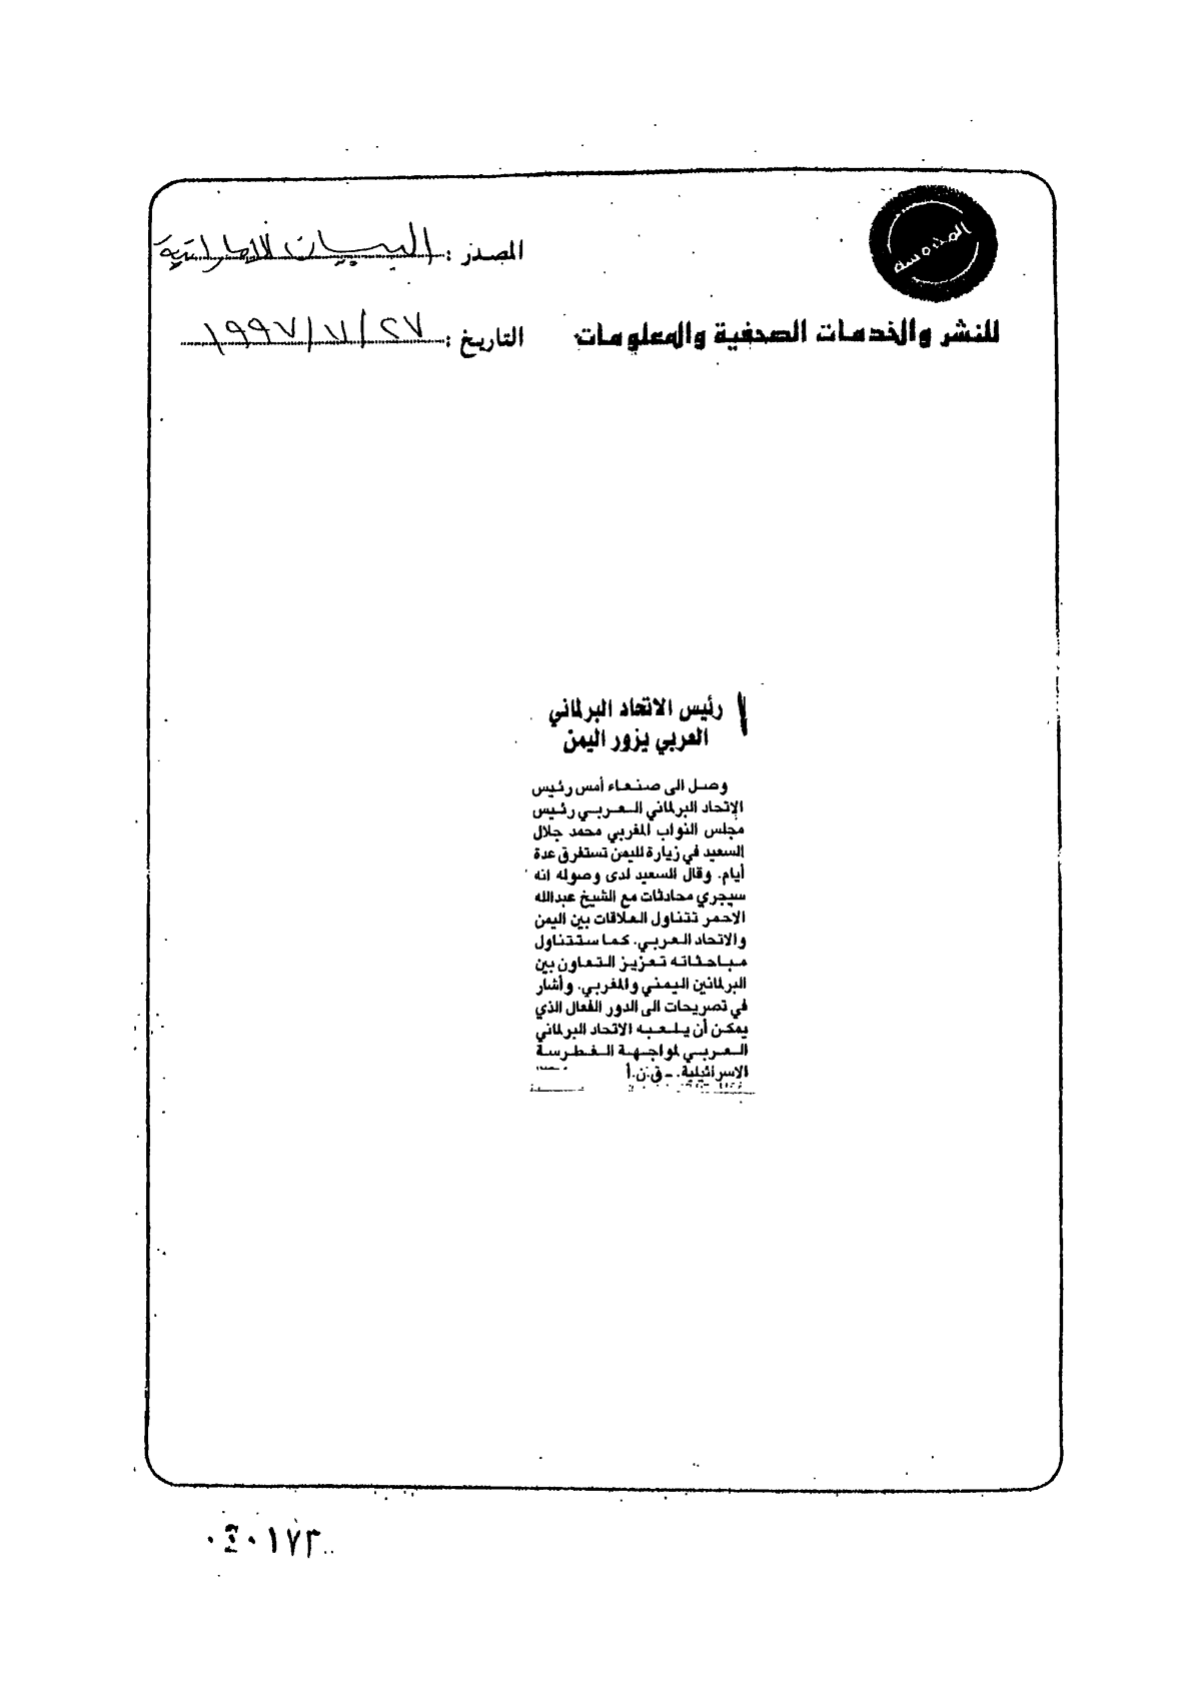 المصدر : البيان الإماراتية
للنشر والخدمات الصحفية والمعلومات
التاريخ : ٢٧ / ٧ / ١٩٩٧
رئيس الاتحاد البرلماني
العربي يزور اليمن
وصل الى صنعاء أمس رئيس
الإتحاد البرلماني العربي رئيس
مجلس النواب المغربي محمد جلال
السعيد في زيارة لليمن تستغرق عدة
أيام. وقال السعيد لدى وصوله انه
سيجري محادثات مع الشيخ عبدالله
الاحمر تتناول العلاقات بين اليمن
والاتحاد العربي. كما ستتناول
مباحثاته تعزيز التعاون بين
البرلمانين اليمني والمغربي. وأشار
في تصريحات الى الدور الفعال الذي
يمكن أن يلعبه الاتحاد البرلماني
العربي لمواجهة الغطرسة
الاسرائيلية. ـ ق.ن.أ